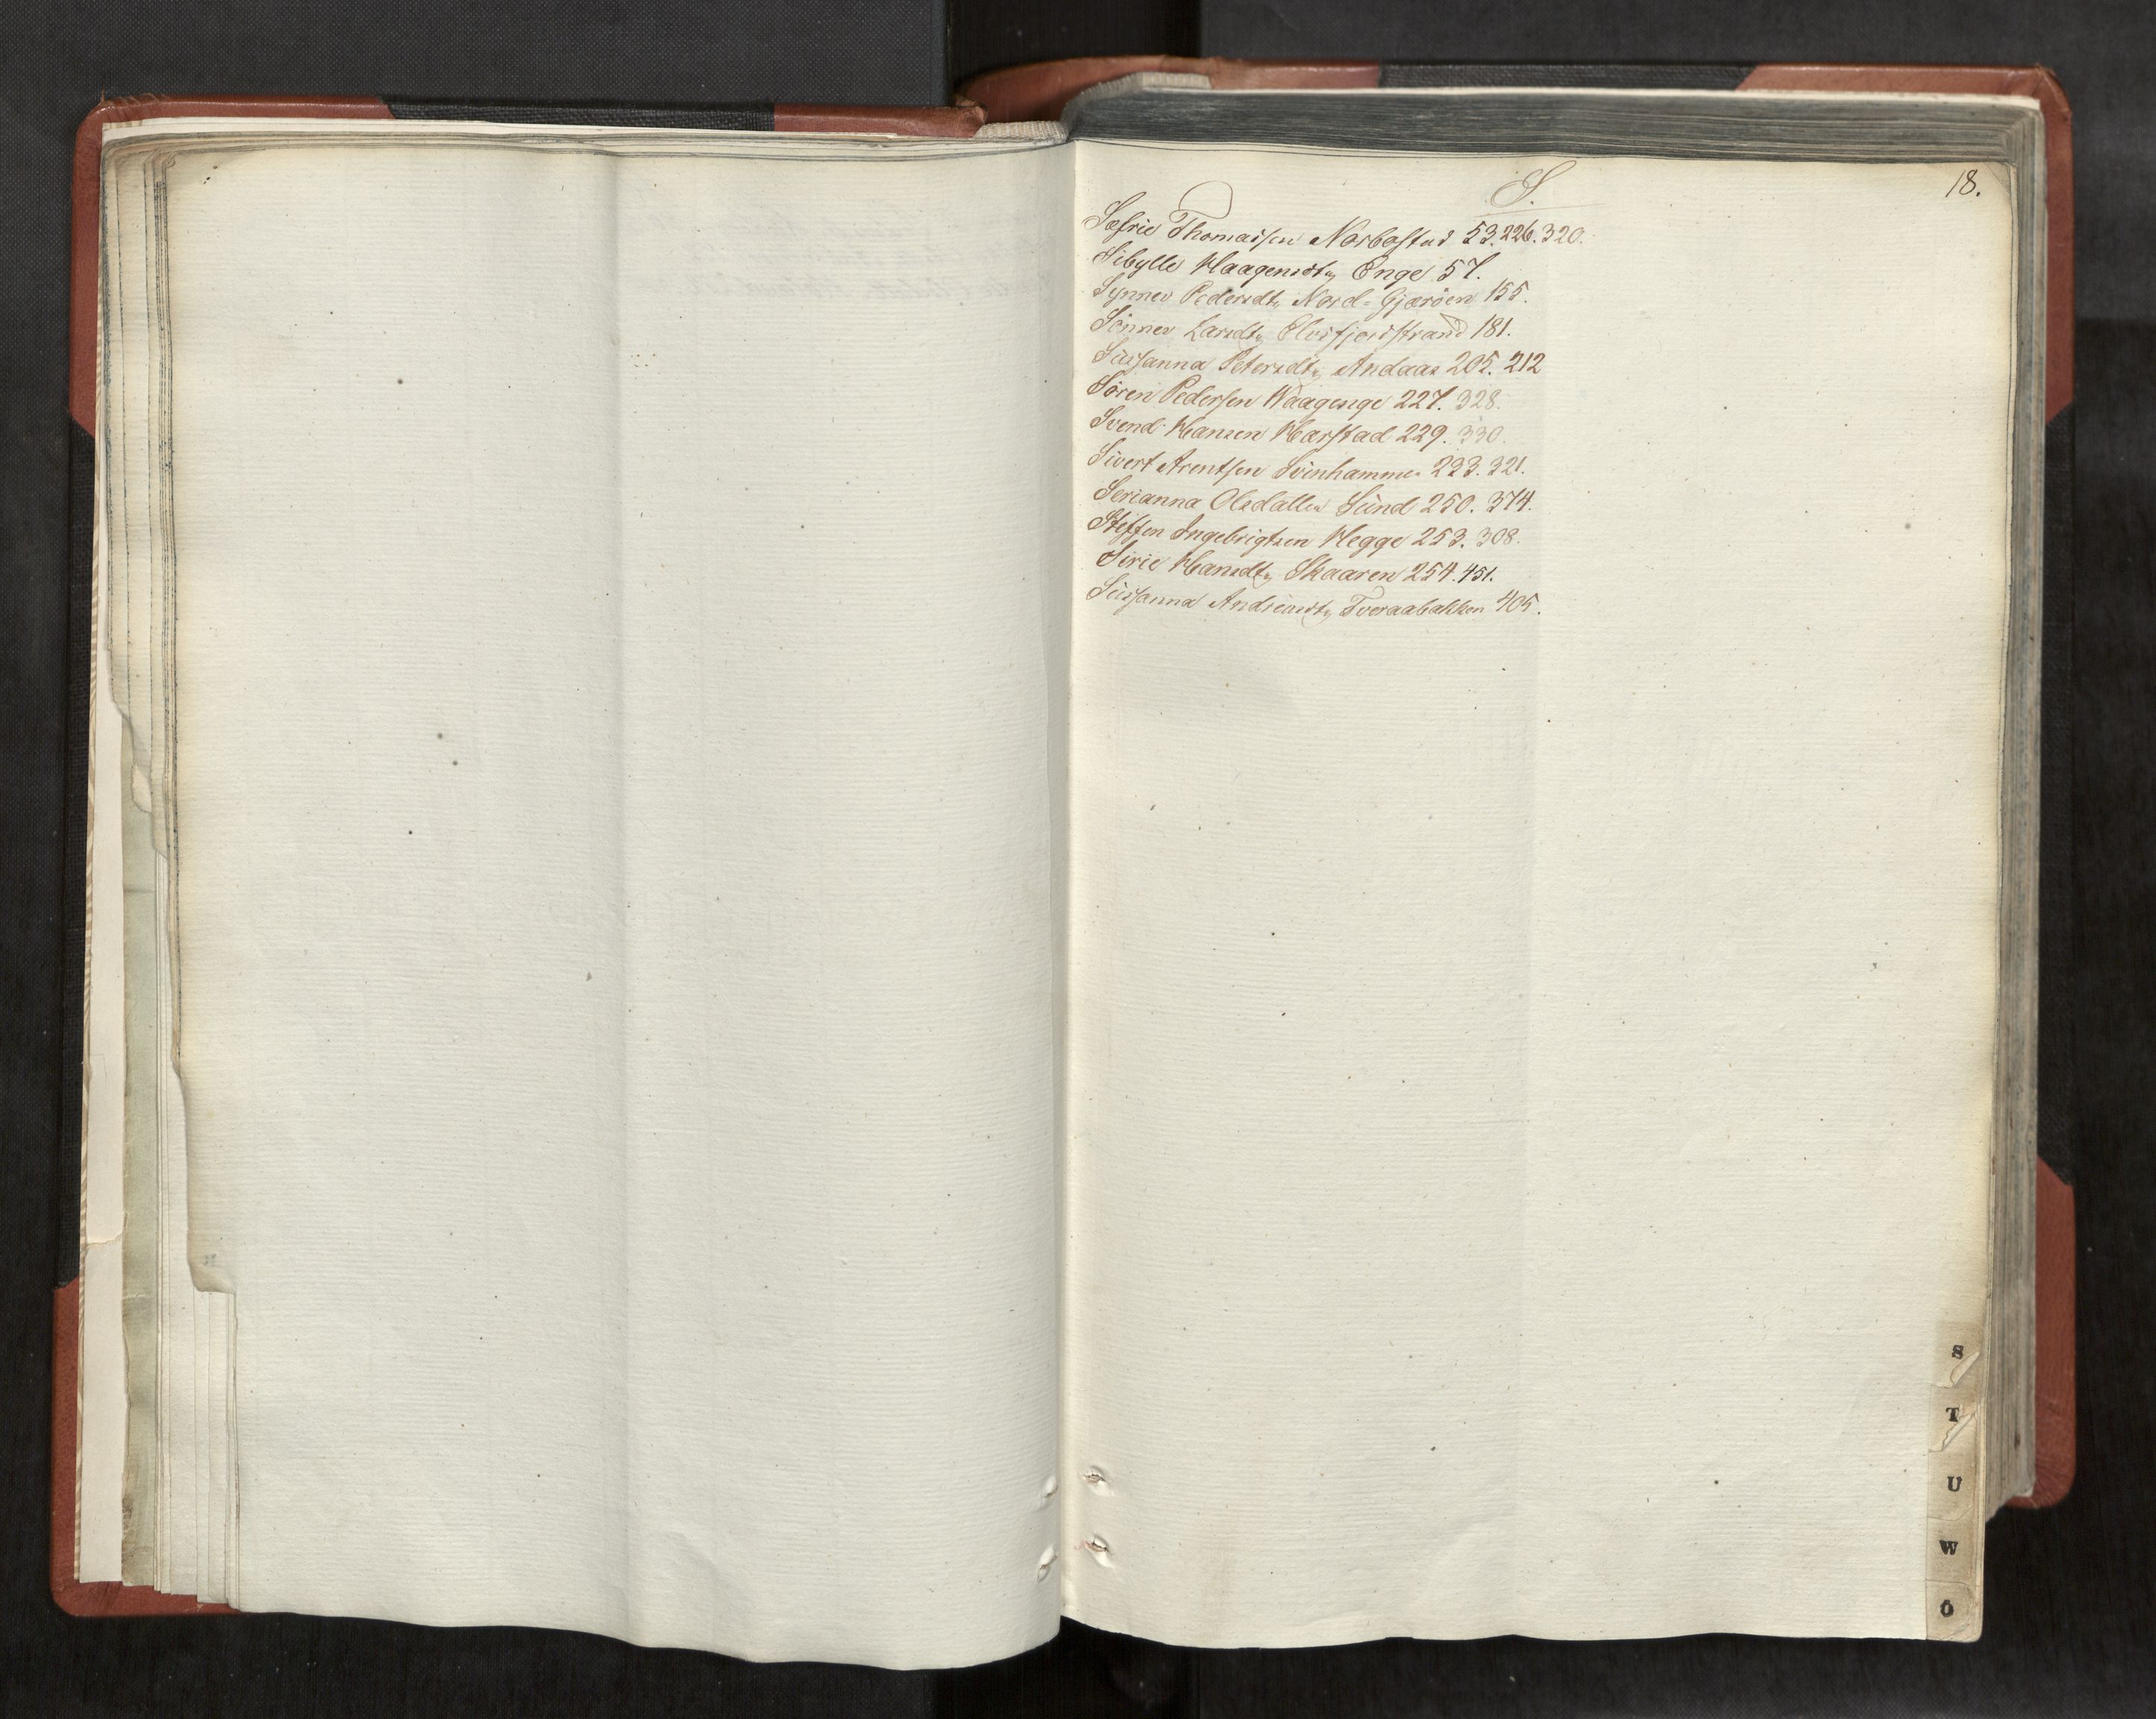 S.
18.
Sefrie Thomassen Norbostad 53. 226. 320.
Sibylle Haagensdtr Enge 57.
Synnev Pedersdtr Nord-Gjærøen 155.
Sönnev Larsdtr Elvsfjordstrand 181.
Susanna Petersdtr Andaas 205. 212
Sören Pedersen Waagenge 227. 328.
Svend Hansen Harstad 229. 330.
Sivert Arentsen Svinhammer 233. 321.
Serianna Olsdatter Sund 250. 374.
Steffen Ingebrigtsen Hegge 253. 308.
Sirie Hansdtr Skaaren 254. 451.
Susanna Andreasdtr Tveraabakken 405.
S
T
U
W
Ö